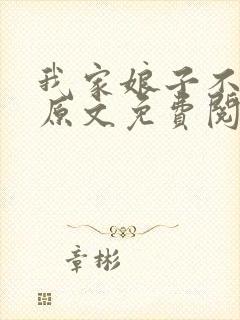 我家娘子不
原文免费阅
章彬